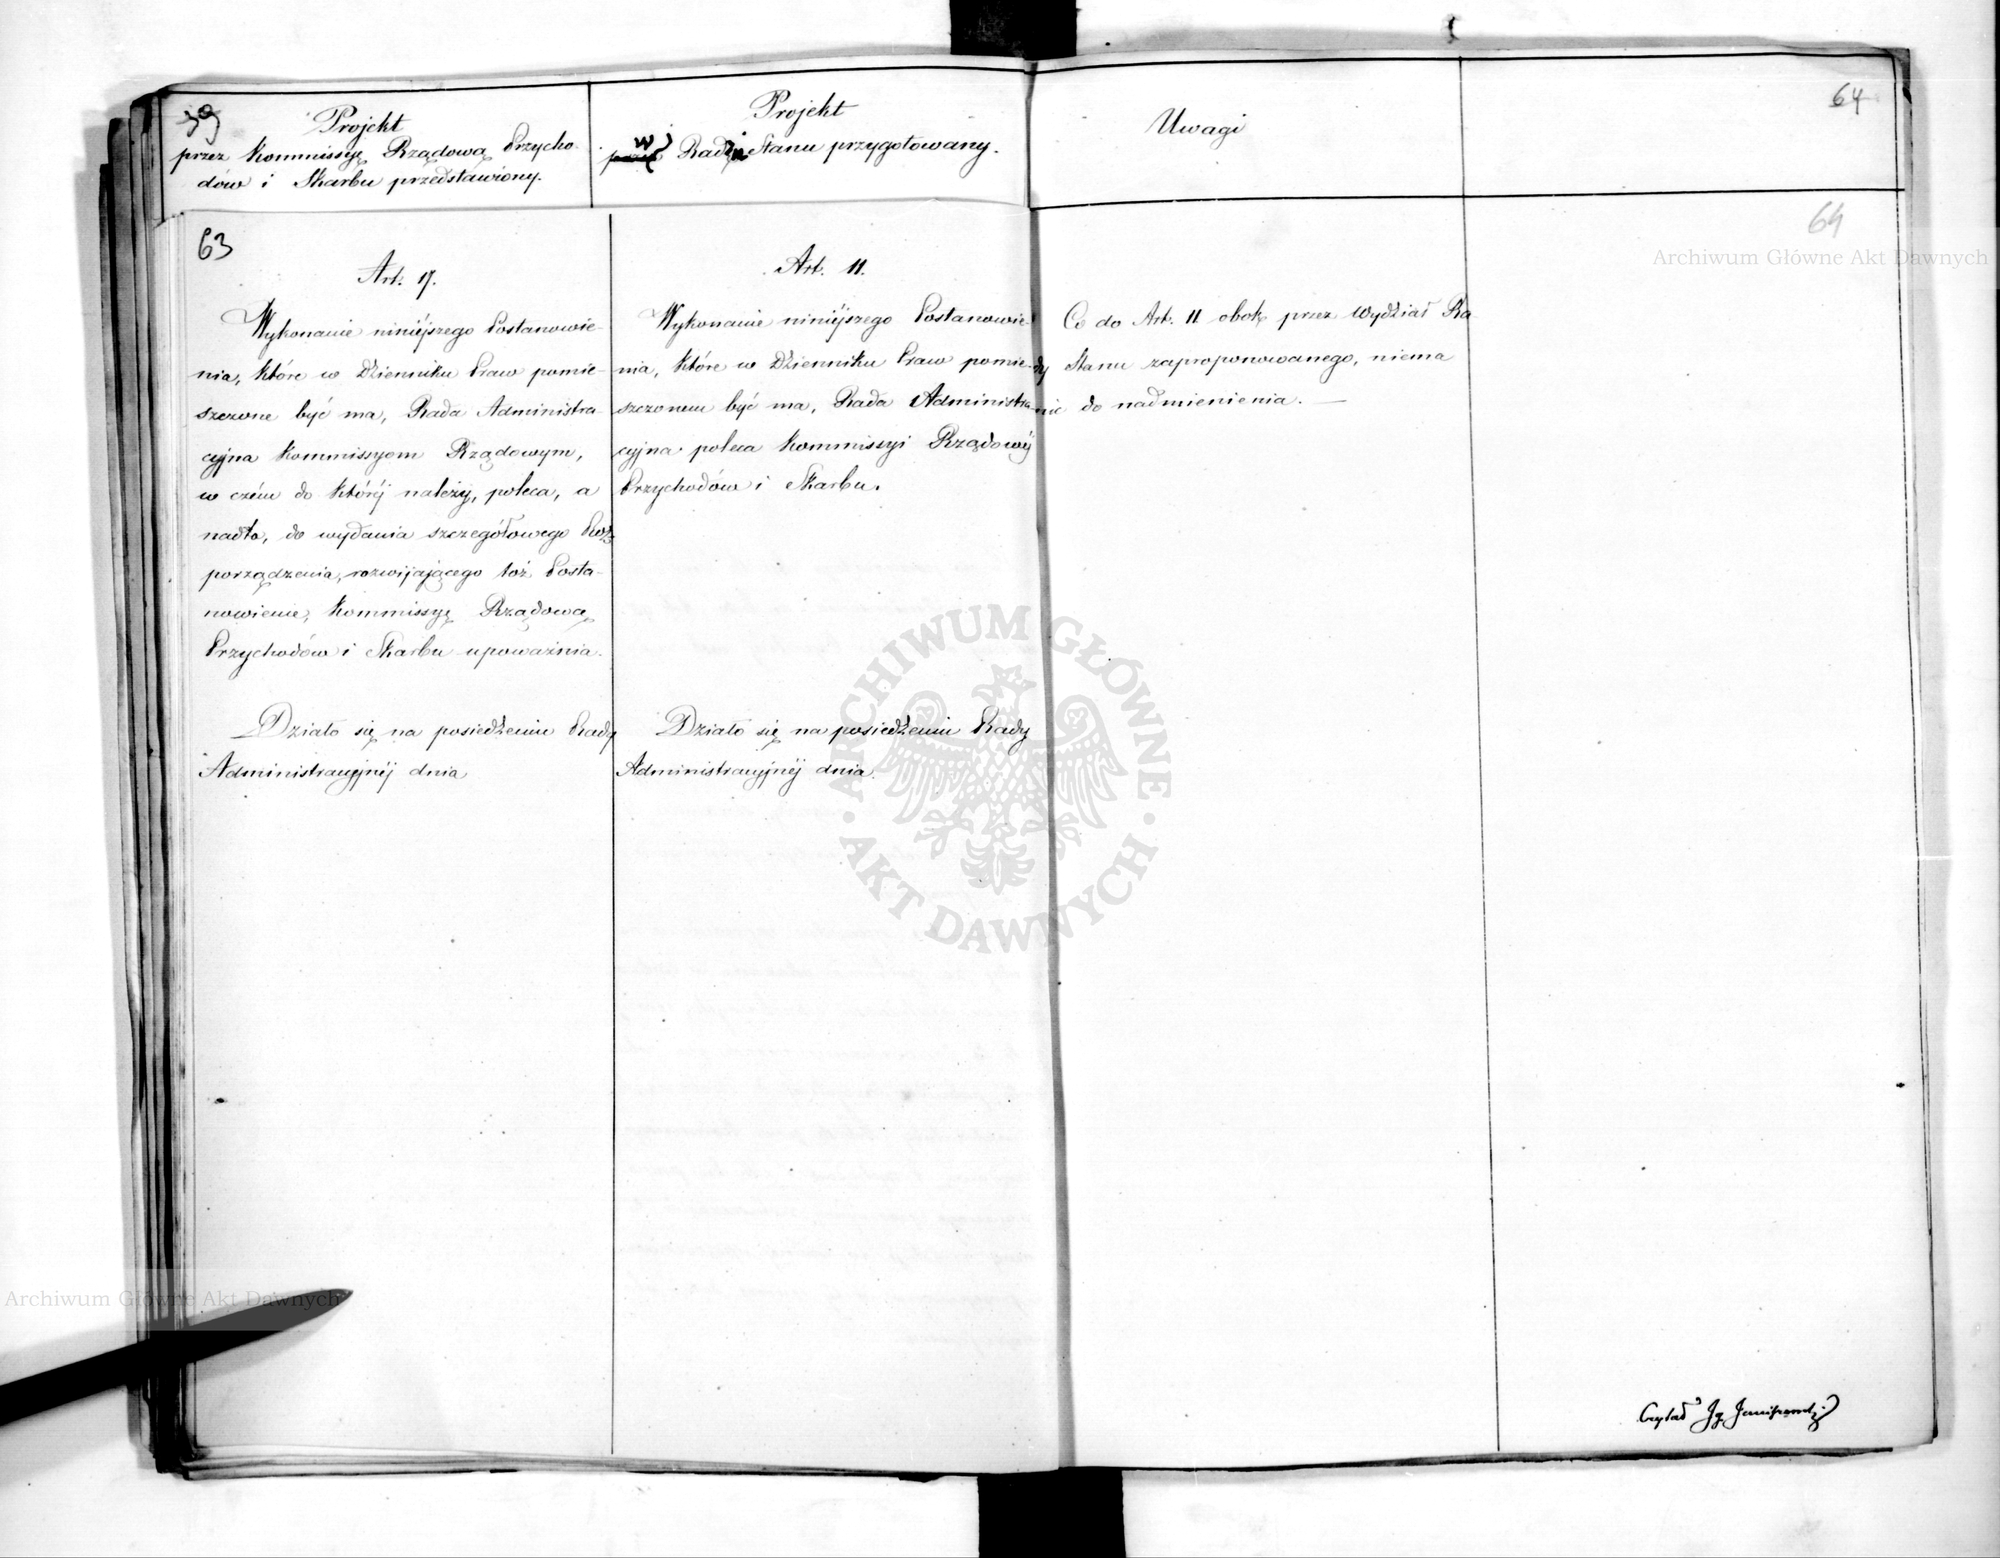 39
Projekt
przez Kommissyę Rządową Przycho-
dów i Skarbu przedstawiony.
Projekt
w
przez Radzie Stanu przygotowany.
Uwagi
64
63
Art. 17.
Wykonanie niniéjszego Postanowie-
nia, które w Dzienniku Praw pomie-
szczone być ma, Rada Administra-
cyjna Kommissyom Rządowym,
w czém do któréj należy, poleca, a
nadto, do wydania szczegółowego Roz-
porządzenia, rozwijającego toż Posta-
nowienie, Kommissyę Rządową
Przychodów i Skarbu upoważnia.
Działo się na posiedzeniu Rady
Administracyjnéj dnia
Art. 11.
Wykonanie niniéjszego Postanowie-
nia, które w Dzienniku Praw pomie-
szczonem być ma, Rada Administra-
cyjna poleca Kommissyi Rządowéj
Przychodów i Skarbu.
Działo się na posiedzeniu Rady
Administracyjnéj dnia.
64
Co do Art. 11 obok przez Wydział Ra
dy Stanu zaproponowanego, niema
nic do nadmienienia. —
Czytał Jg
Archiwum Główne Akt Dawnych
ARCHIWUM GŁÓWNE
· AKT DAWNYCH ·
Archiwum Główne Akt Dawnych